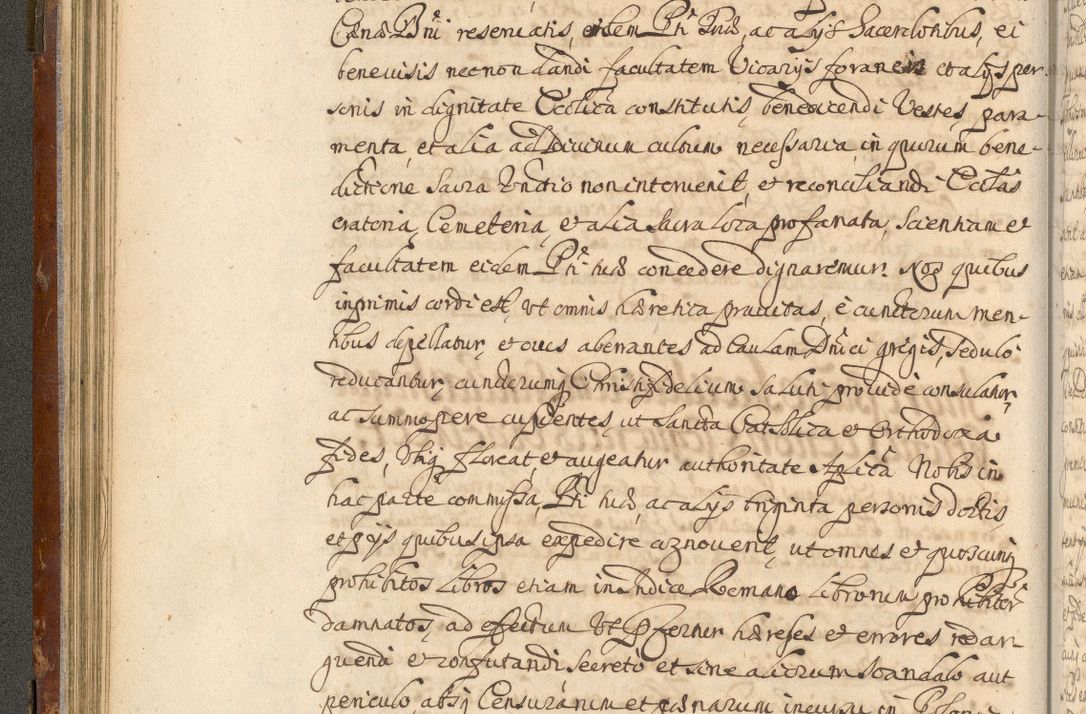 Cænâ Dñi reservatis, eidem Pti Tuæ, ac alijs Sacerdotibus, ei
benevisis necnon dandi facultatem Vicarijs foraneis et alijs per-
sonis in dignitate Ecclica constitutis, benedicendi Vestes, para-
menta, et alia ad Divinum cultum necessaria, in quorum bene-
dictione Sacra Vnctio non intervenit, et reconciliandi Ecclias
oratoria, Cemeteria, et alia Sacra loca profanata, Scientiam et
facultatem eidem Pti tuæ concedere dignaremur. Nos quibus
inprimis cordi est, ut omnis hæretica pravitas, è cunctorum men-
tibus depellatur, et oves aberrantes ad Caulam Dñici gregis, sedulo
reducantur, cunctorumq Christifidelium saluti provide consulatur
ac summopere cupientes, ut Sancta Catholica et Orthodoxa
fides, Vbiq floreat, et augeatur authoritate Aplica Nobis in
hac parte commissa, Pti tuæ, ac alijs triginta personis doctis
et pijs quibus ipsa expedire agnoverit, ut omnes et quoscunq
prohibitos Libros etiam in Indice Romano Librorum prohibitor
damnatos, ad effectum Vt Pfertur hæreses et errores redar-
guendi et confutandi Secreto et sine aliorum scandalo aut
periculo, absq Censurarum et pœnarum incursu in